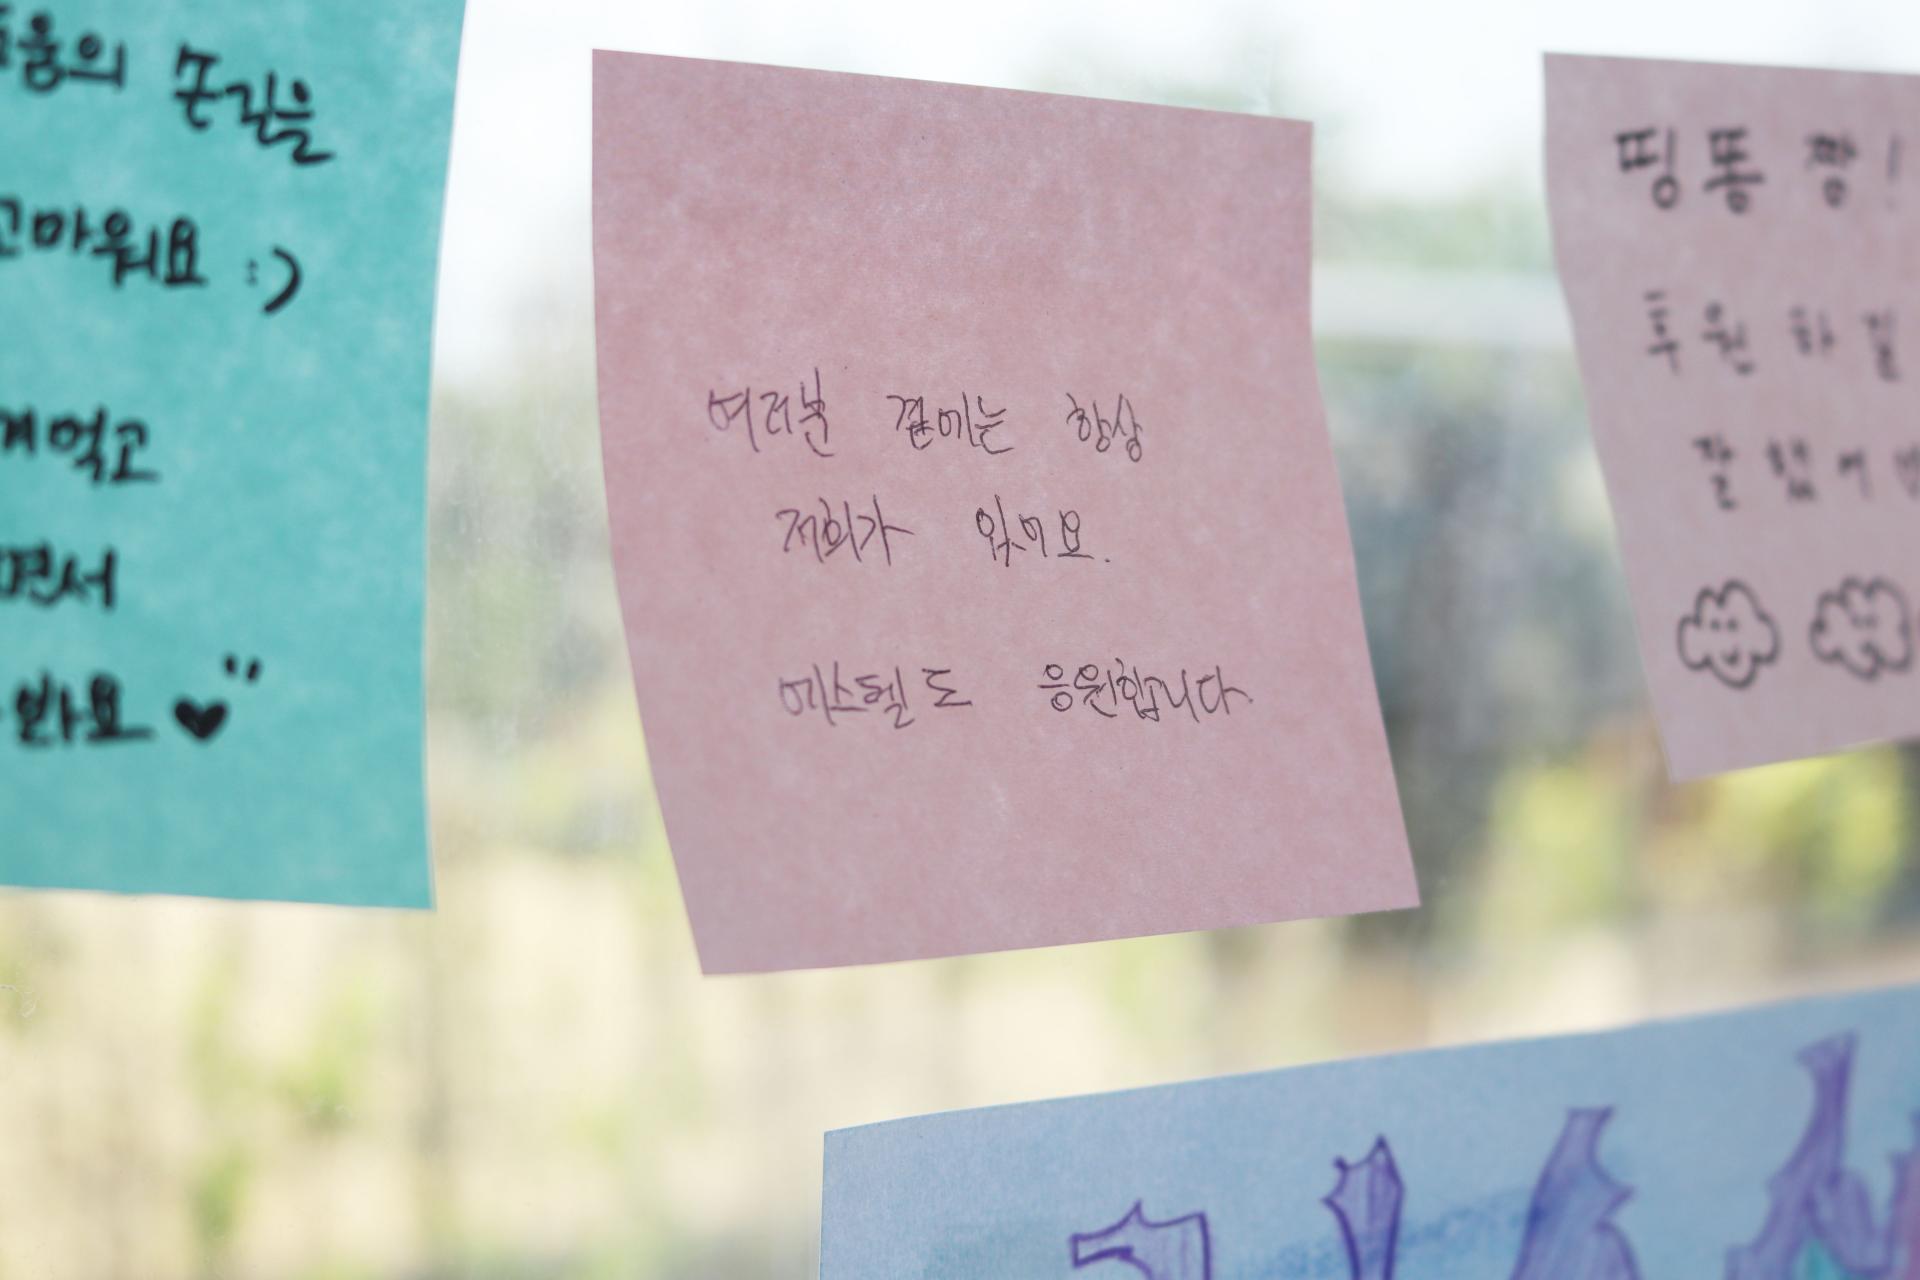 손길을
고마워요 :)
먹고
면서
봐요 ♥
여러분 곁에는 항상
저희가 있어요.
에스텔도 응원합니다.
띵똥 짱!
후원하길
잘했